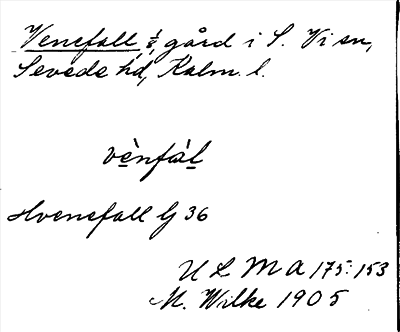 Venefall, 1/8, gård i S. Vi sn,
Sevede hd, Kalm. l.
vènfàl
Hvenefall Lj 36
ULMA 175:153
M. Wilke 1905